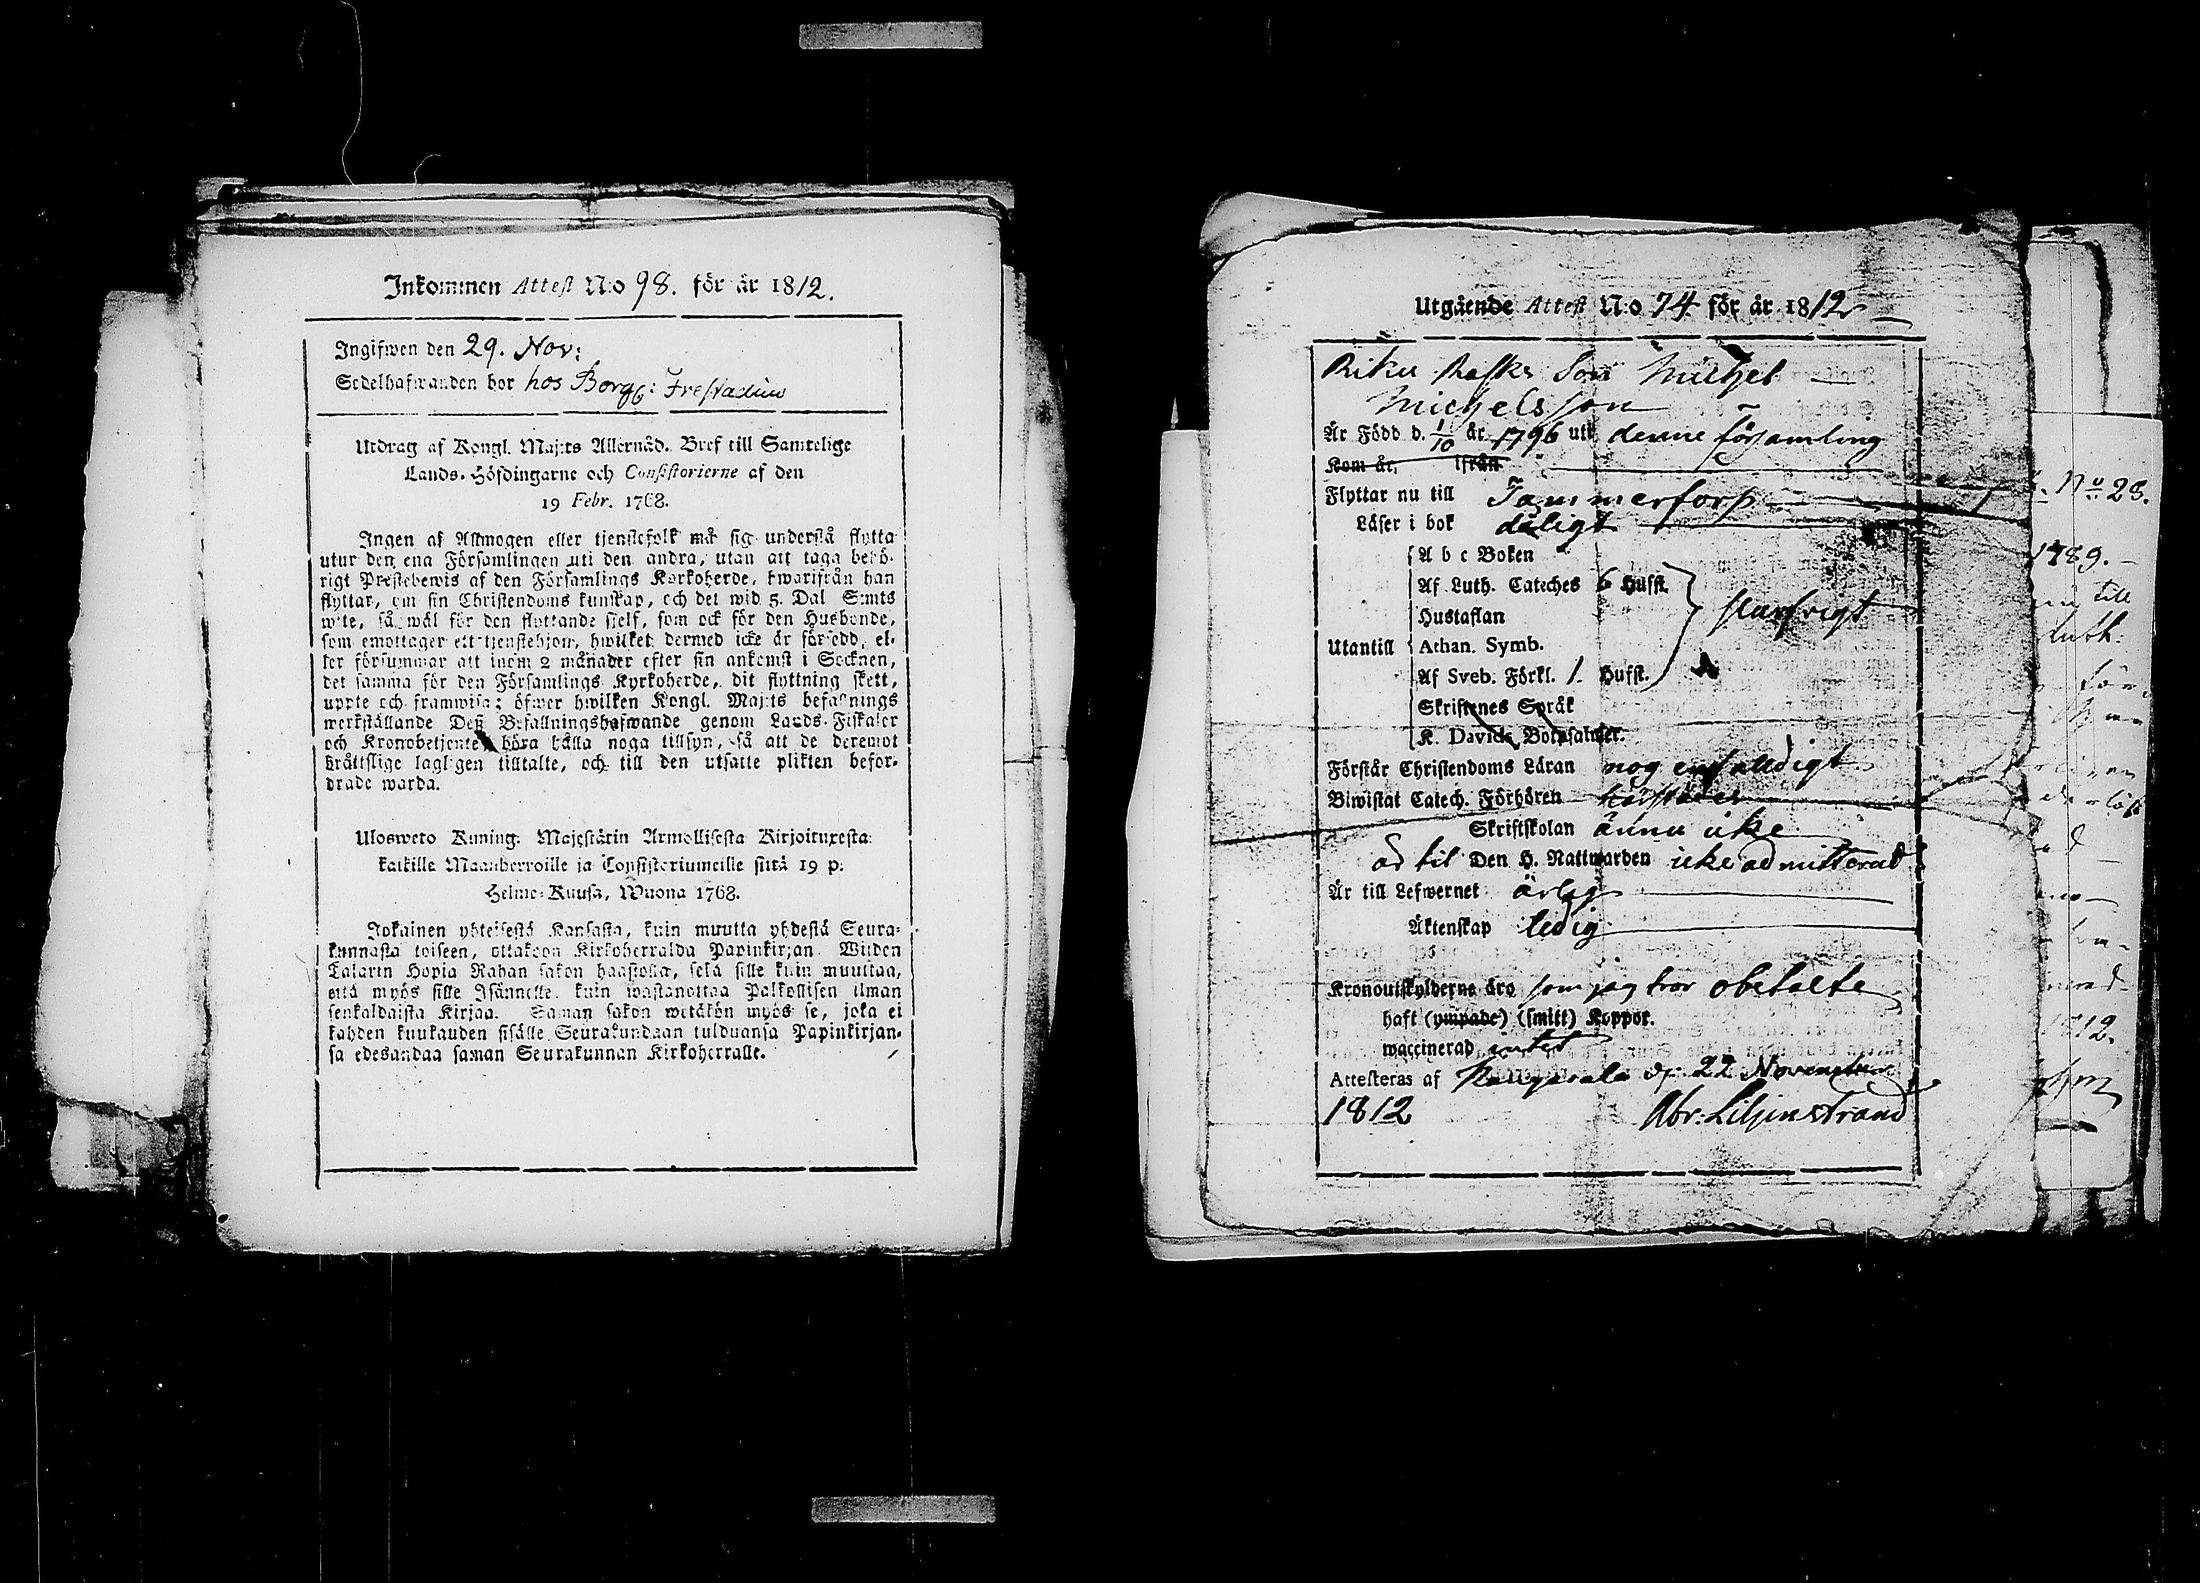 Inkommen Attest N:o 98. för år 1812.
Ingifwen den 29. Nov:
Sedelhafwanden bor hos Borgg: Frestadius
Utdrag af Kongl. Maj:ts Allernåd. Bref till Samtelige
Lands-Höfdingarne och Consistorierne af den
19 Febr. 1768.
Ingen af Allmogen eller tjenstefolk må sig understå flytta
utur den ena Församlingen uti den andra, utan att taga behö-
rigt Prestebewis af den Församlings Kyrkoherde, hwarifrån han
flyttar, om sin Christendoms kunskap, och det wid 5. Dal S:mts
wite, så wäl för den flyttande sielf, som ock för den Husbonde,
som emottager ett tjenstehjon, hwilket dermed icke är försedd, el-
ler försummar att inom 2 månader efter sin ankomst i Socknen,
det samma för den Församlings Kyrkoherde, dit flyttning skett,
uppte och framwisa; öfwer hwilken Kongl. Maj:ts befallnings
werkställande Deß Befallningshafwande genom Lands-Fiskaler
och Kronobetjente böra hålla noga tillsyn, så att de deremot
bråttslige lagligen tilltalte, och till den utsatte plikten befor-
drade warda.
Ulosweto Kuning: Majestätin Armollisesta Kirjoituxesta
kaikille Maanherroille ja Consistoriumeille siitä 19 p:
Helme-Kuusa, Wuona 1768.
Jokainen yhteisestä Kansasta, kuin muutta yhdestä Seura-
kunnasta toiseen, ottakoon Kirkoherralda Papinkirjan Wijden
Talarin Hopia Rahan sakon haastolla, sekä sille kuin muuttaa,
että myös sille Isännelle, kuin wastanottaa Palkollisen ilman
senkaldaista Kirjaa. Saman sakon wetäkön myös se, joka ei
kahden kuukauden sisälle Seurakundaan tulduansa Papinkirjan-
sa edesandaa saman Seurakunnan Kirkoherralle.
Utgående Attest N:o 74 för år 1812
Michel
Michelsson
Är Född d. 1/10 år 1796 uti denne församling
Kom år, ifrån
Flyttar nu till Tammerforss
Läser i bok dåligt
A b c Boken
Af Luth. Cateches 6 Hufst.
Hustaflan
Utantill Athan. Symb.
Af Sveb. Förkl. 1. Hufst.
Skriftenes Språk
K. Davids Botpsalmer.
Förstår Christendoms Läran nog enfaldigt
Biwistat Catech. Förhören
Skriftskolan ännu icke
od til Den H. Nattwarden icke admitterad
Är till Lefwernet ärlig
Äktenskap ledig
Kronoutskylderne äro som jag tror obetalte
haft (ympade) (smitt) Koppor.
waccinerad intet
Attesteras af Kangasala d. 22 November
1812 Abr: Liljenstrand
No 28.
1789.
till